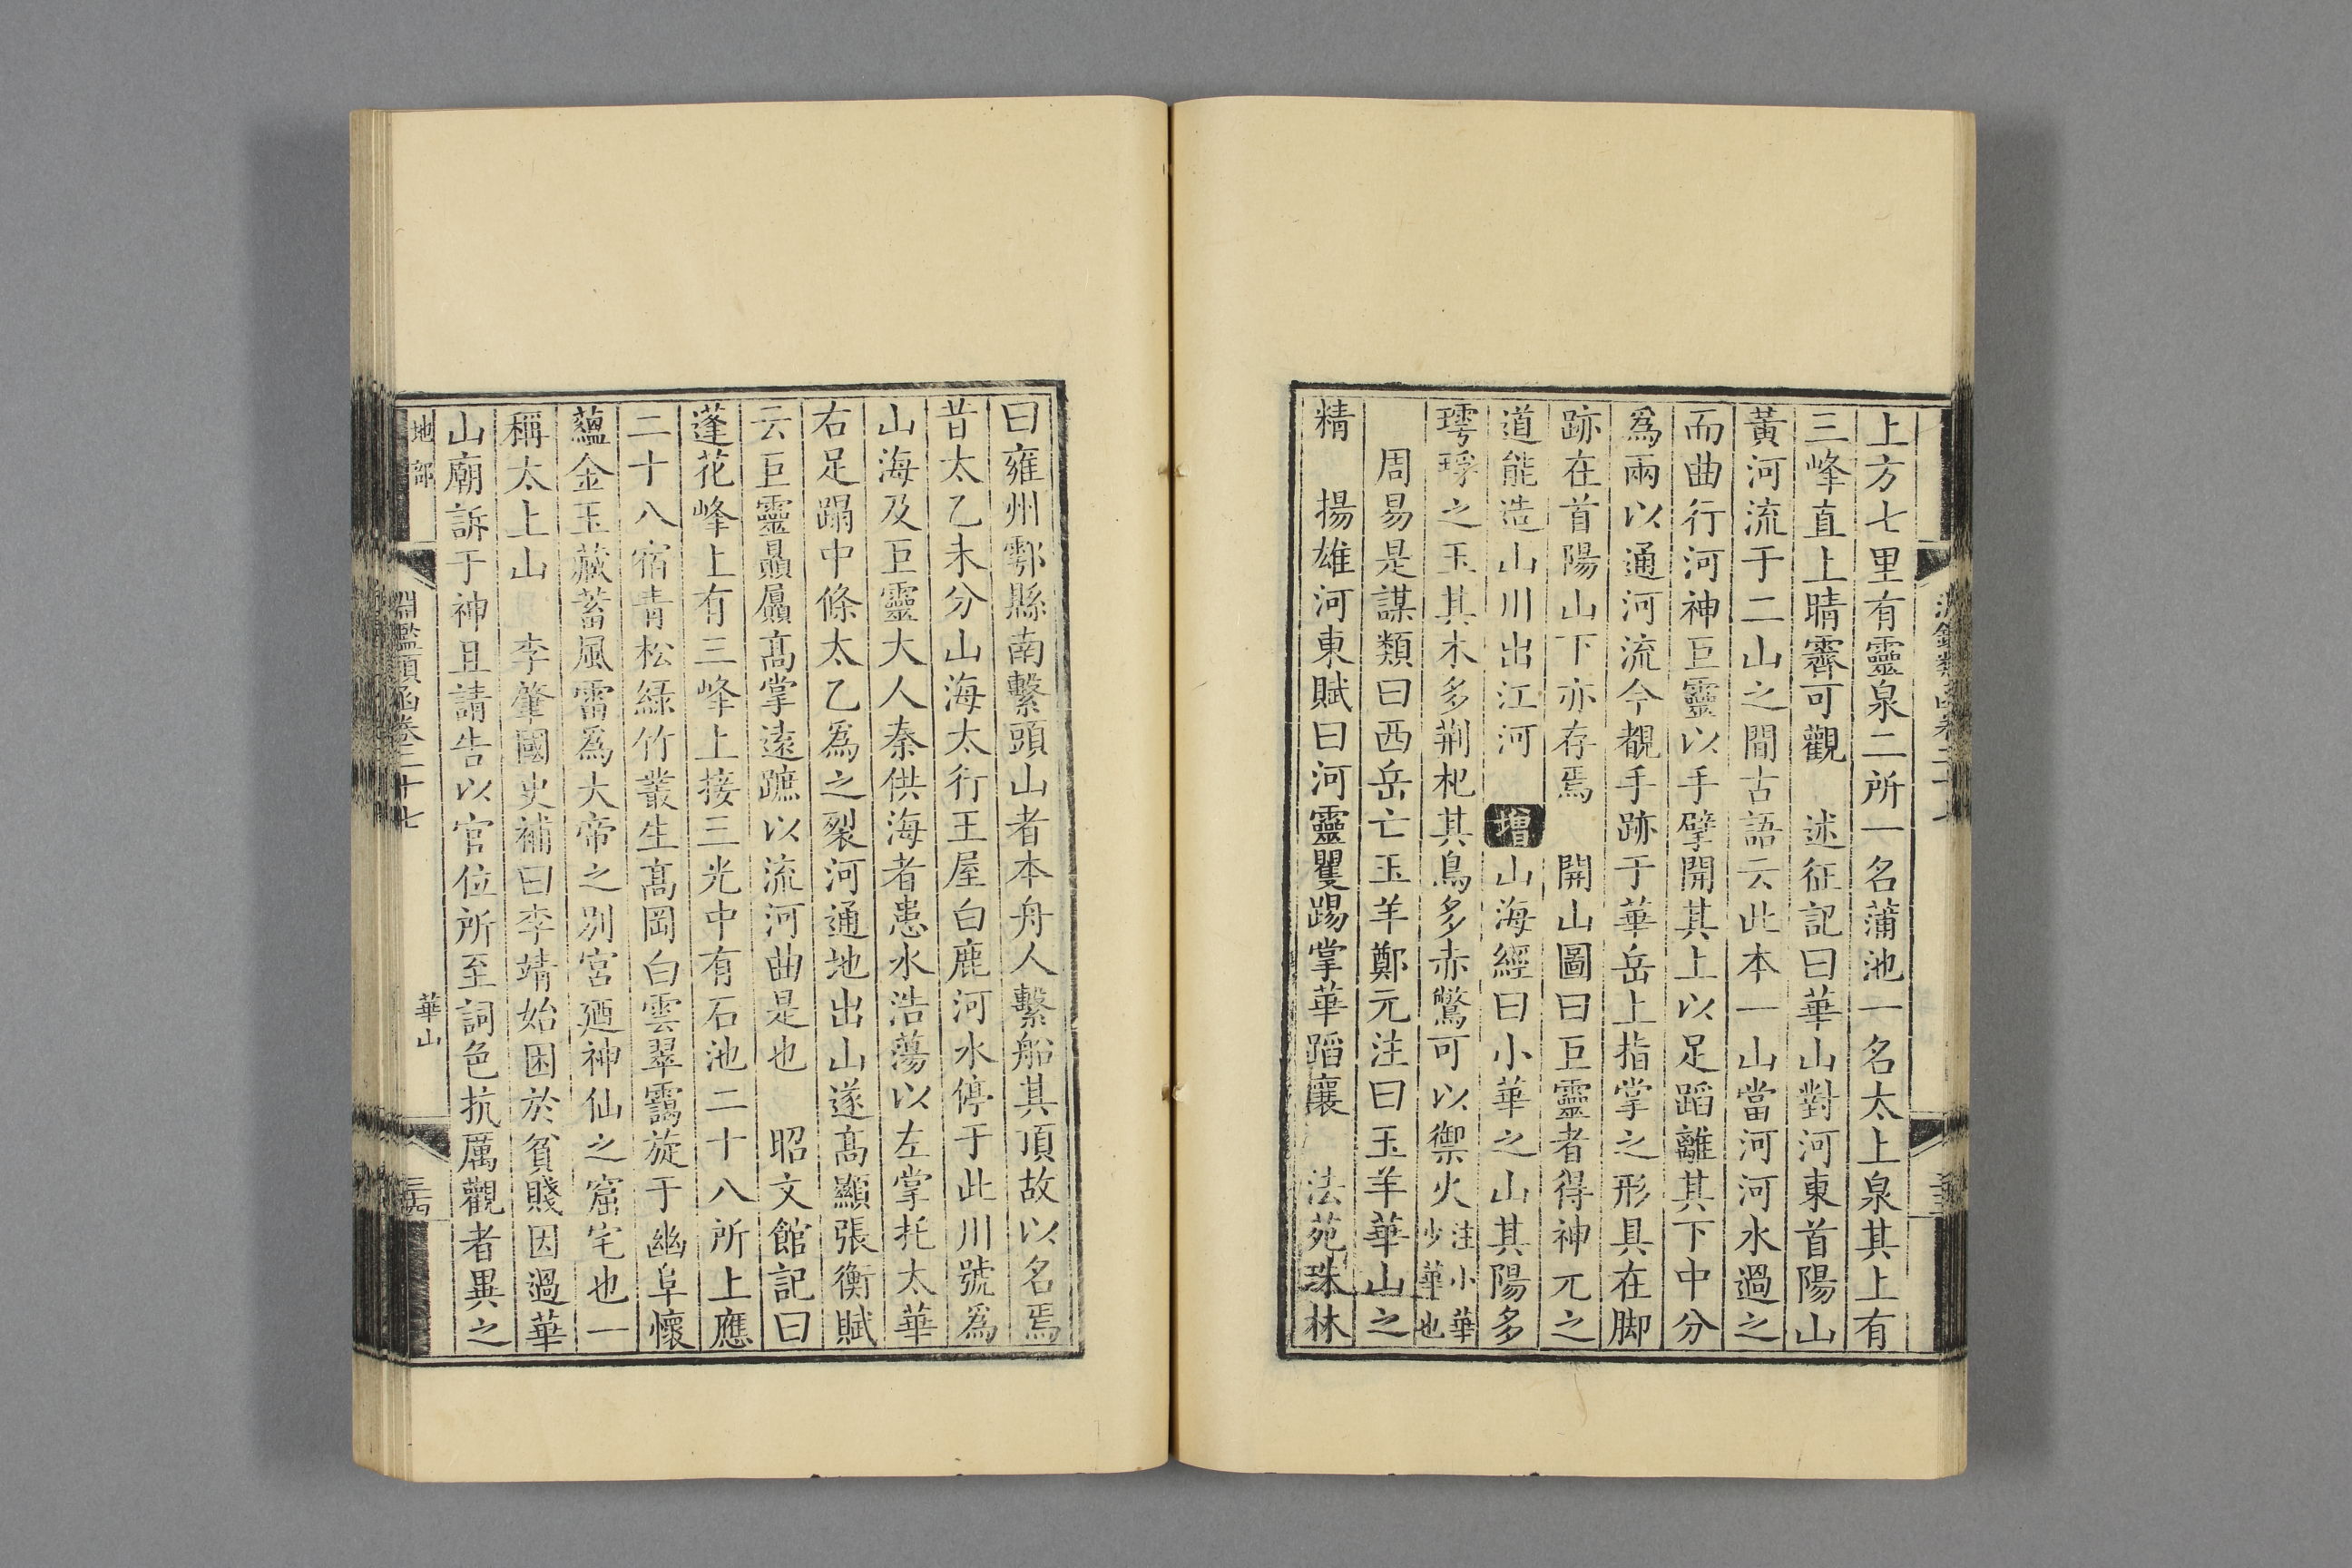 上方七里有靈泉二所一名蒲池一名太上泉其上有
三峰直上晴霽可觀　述征記曰華山對河東首陽山
黃河流于二山之間古語云此本一山當河河水過之
而曲行河神巨靈以手擘開其上以足蹈離其下中分
爲兩以通河流今覩手跡于華岳上指掌之形具在脚
跡在首陽山下亦存焉　開山圖曰巨靈者得神元之
道能造山川出江河　增山海經曰小華之山其陽多
㻬琈之玉其木多荆杞其鳥多赤鷩可以禦火注小華少華也
周易是謀類曰西岳亡玉羊鄭元注曰玉羊華山之
精　揚雄河東賦曰河靈矍踢掌華蹈襄　法苑珠林
曰雍州鄠縣南繫頭山者本舟人繫船其頂故以名焉
昔太乙未分山海太行王屋白鹿河水停于此川號爲
山海及巨靈大人秦供海者患水浩蕩以左掌托太華
右足蹋中條太乙爲之裂河通地出山遂髙顯張衡賦
云巨靈贔屭高掌遠蹠以流河曲是也　昭文館記曰
蓬花峰上有三峰上接三光中有石池二十八所上應
二十八宿青松綠竹叢生髙岡白雲翠靄旋于幽阜懷
蘊金玉藏蓄風雷爲大帝之別宮廼神仙之窟宅也一
稱太上山　李肇國史補曰李靖始困於貧賤因過華
山廟訴于神且請告以官位所至詞色抗厲觀者異之
地部
淵鑑類函卷二十七
華山